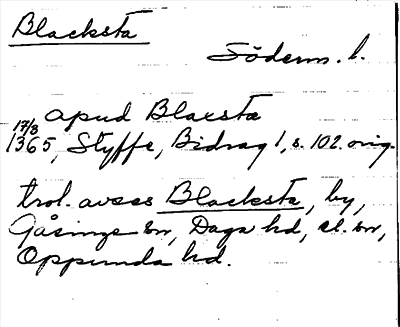 Blacksta
Söderm. l.
apud Blacsta
17/3
1365, Styffe, Bidrag 1, s. 102. orig.
trol. avses Blacksta, by,
Gåsinge sn, Daga hd, el. sn,
Oppunda hd.